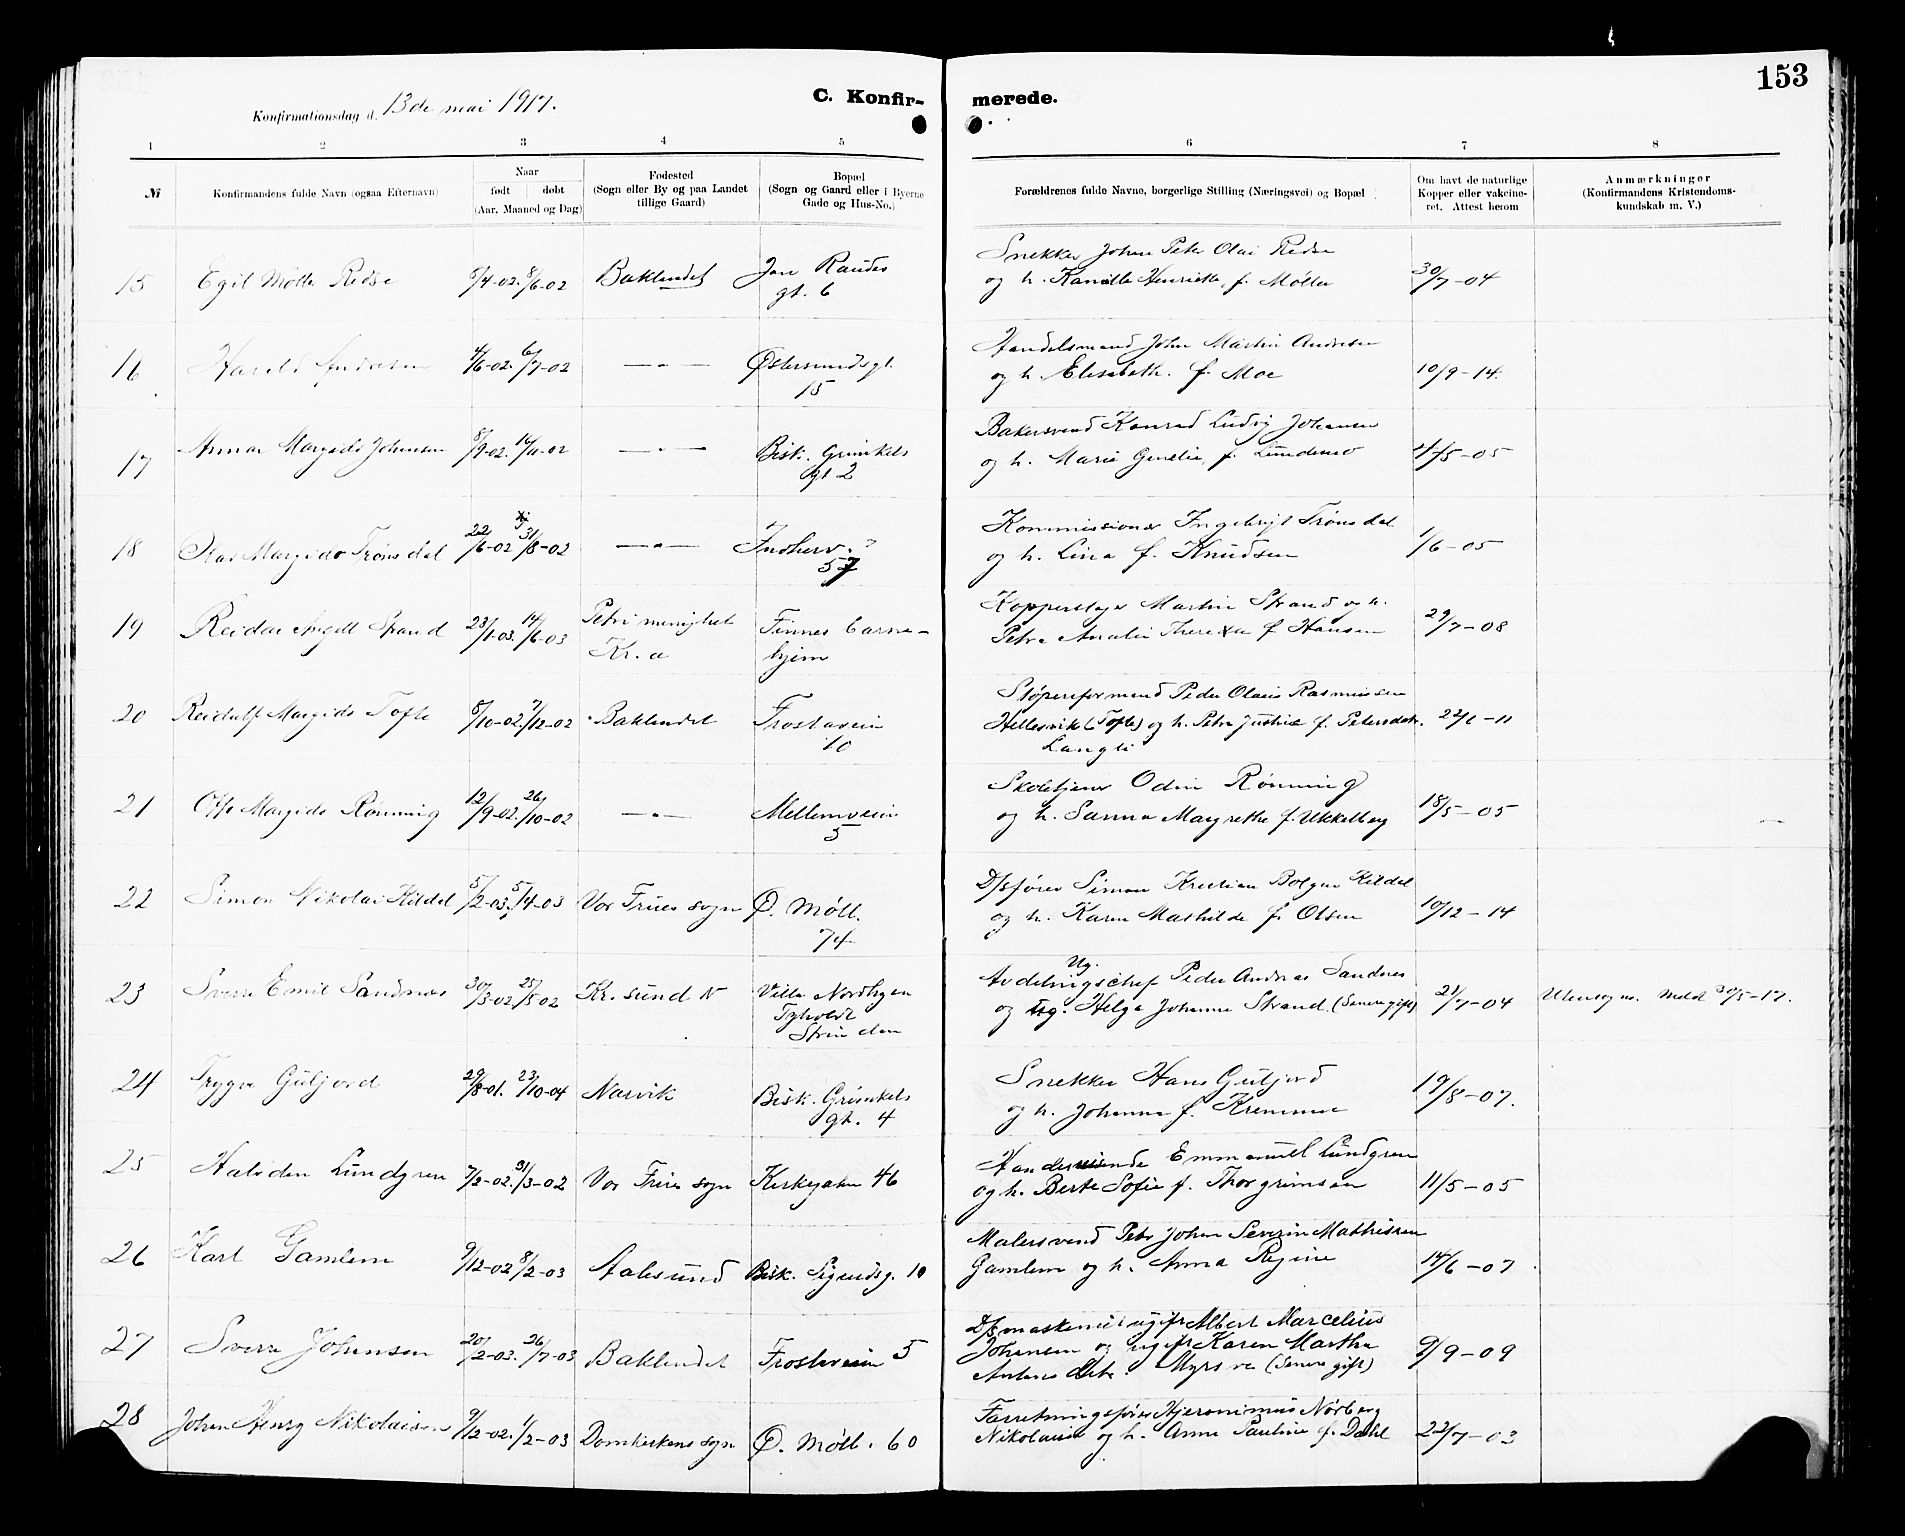 153
Konfirmationsdag d. 13de mai 1917.
C. Konfirmerede.
1 2 3 4 5 6 7 8
№
Konfirmandens fulde Navn (ogsaa Efternavn)
Naar
født døbt
(Aar, Maaned og Dag)
Fødested
(Sogn eller By og paa Landet
tillige Gaard)
Bopæl
(Sogn og Gaard eller i Byerne
Gade og Hus-No.)
Forældrenes fulde Navne, borgerlige Stilling (Næringsvei) og Bopæl
Om havt de naturlige
Kopper eller vakcine-
ret. Attest herom
Anmærkninger
(Konfirmandens Kristendoms-
kundskab m. V.)
15 Egil Møller Redse 5/4-02. 8/6-02 Baklandet Jon Raudes
gt. 6
Snekker Johan Peter Olai Redse
og h. Kamilla Henriette, f. Møller 30/7-04
16 Harald Andresen 4/6-02. 6/7-02 —"— Østersundsgt.
15
Handelsmand John Martin Andresen
og h. Elisabeth. f. Moe 10/9-14.
17 Johansen 8/9-02. 16/11-02 —"— Bisk. Grimkels
gt 2
Bakersvend Konrad Ludvig Johansen
og h. Marie f. 4/5-05
18 Olav Margido Trønsdal 22/6-02 31/8-02 —"— Indherv.
57
Kommissionær Ingebrigt Trønsdal
og h. Lina f. Knudsen 1/6-05
19 Reidar Angell Strand 23/1-03. 14/6-03 Petri menighet
Kr.a
Finnes barne-
hjem
Kopperslager Martin Strand og h.
Petra Amalie Theresia f. Hansen 29/7-08
20 Reidulf Margido Tofte 5/10-02. 7/12-02 Baklandet Frostaveien
10
Støperiformand Peder Olaus Rasmussen
Hellesvik (Tofte) og h. Petra Justine f. Petersdatr.
Langli
22/1-11
21 Otto Margido Rønning 12/9-02. 26/10-02 —"— Mellemveien
5
Skoletjener Odin Rønning
og h. Sanna Margrethe f. Ukkelberg 18/5-05
22 Simon Nikolai Kildal 5/2-03. 5/4-03 Vor Frues sogn Ø. Møll.
74
D/sfører Simon Kristian Kildal
og h. Karen Mathilde f. Olsen 10/12-14
23 Sverre Emil Sandnes 30/3-02. 25/5 02 Kr.sund N Villa Nordhøgen
Tyholdt
Strinden
Ug.
Avdelingschef Peder Andreas Sandnes
og ug. Helga Johanna Strand. (Senere gift) 21/7-04 Utensogns. Meldt 30/5-17.
24 Trygve Guljord 29/8-01. 23/10-04 Narvik Bisk. Grimkels
gt. 4
Snekker Hans Guljord
og h. Johanna f. Kremmer 19/8-07.
25 Halvdan Lundgren 7/2-02. 31/3-02 Vor Frues sogn Kirkegaten 46
Handelsreisende Emmanuell Lundgren
og h. Berte Sofie f. Thorgrimsen 11/5-05
26 Karl Gamlem 9/12-02 8/2-03 Aalesund Bisk. Sigurdsg. 10
Malersvend Peter Johan Severin Mathissen
Gamlem og h. Anna Regine 14/6-07
27 Sverre Johansen 20/2-03. 26/7-03 Baklandet Frostaveien 5
D/s maskinist ugift Albert Marcelius
Johansen og ugift Karen Martha
Andersdtr. Myrsve (Senere gift) 9/9-09
28 Johan Henry Nikolaisen 9/12-02. 1/2-03 Domkirkens sogn Ø. Møll. 60
Forretningsfører Hjeronimus Nørberg
Nikolaisen og h. Anna Pauline f. Dahl 22/7-03